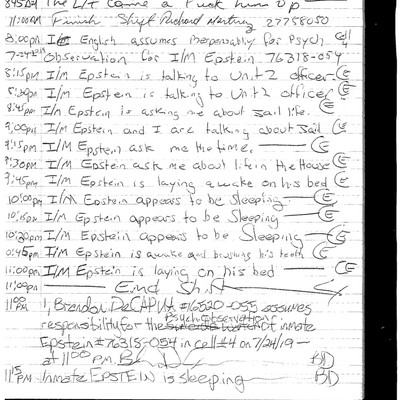 8:45AM The L/T came a Pick him up
11:00AM Finish Shift Richard 27758050
8:00pm I/M English assumes Responsability for Psych Cell 4
7-24-19 Observation for I/M Epstein 76318-054
8:15PM I/M Epstein is talking to Unit 2 officer CE
8:30PM I/M Epstein is talking to Unit 2 officer CE
8:45PM I/M Epstein is asking me about Jail life. CE
9:00PM I/M Epstein and I are talking about Jail CE
9:15PM I/M Epstein ask me the time. CE
9:30PM I/M Epstein ask me about life in the House CE
9:45PM I/M Epstein is laying awake on his bed CE
10:00PM I/M Epstein appears to be Sleeping CE
10:15PM I/M Epstein appears to be Sleeping CE
10:30pm I/M Epstein appears to be Sleeping CE
10:45PM I/M Epstein is awake and brushing his teeth CE
11:00PM I/M Epstein is laying on his bed CE
11:00PM End Shift
11:00 PM I, Brendan DeCAPUA #16520-055 assumes
Psych Observation
responsibility for the of inmate
Epstein #76318-054 in cell #4 on 7/24/19
at 11:00 P.M. BD
11:15 PM Inmate EPSTEIN is sleeping BD